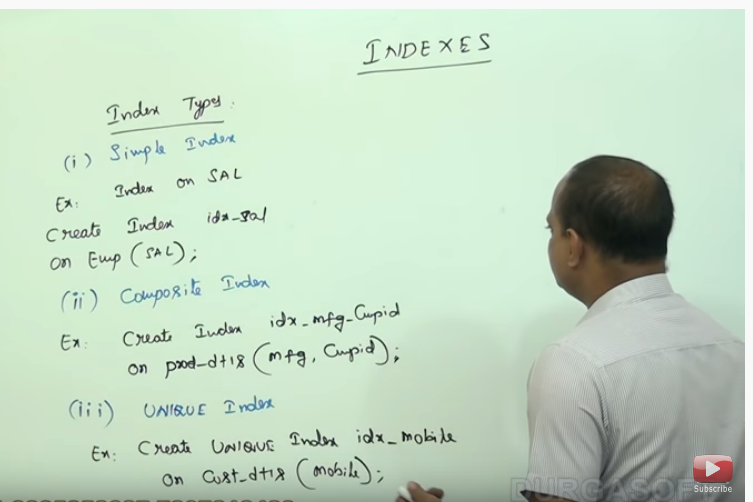 INDEXES
Index Types:
(i) Simple Index
Ex: Index on SAL
Create Index idx_sal
on Emp (SAL);
(ii) Composite Index
Ex: Create Index idx_mfg_Cupid
on prod_dtls (mfg, Cupid);
(iii) UNIQUE Index
Ex: Create UNIQUE Index idx_mobile
on Cust_dtls (mobile);
Subscribe